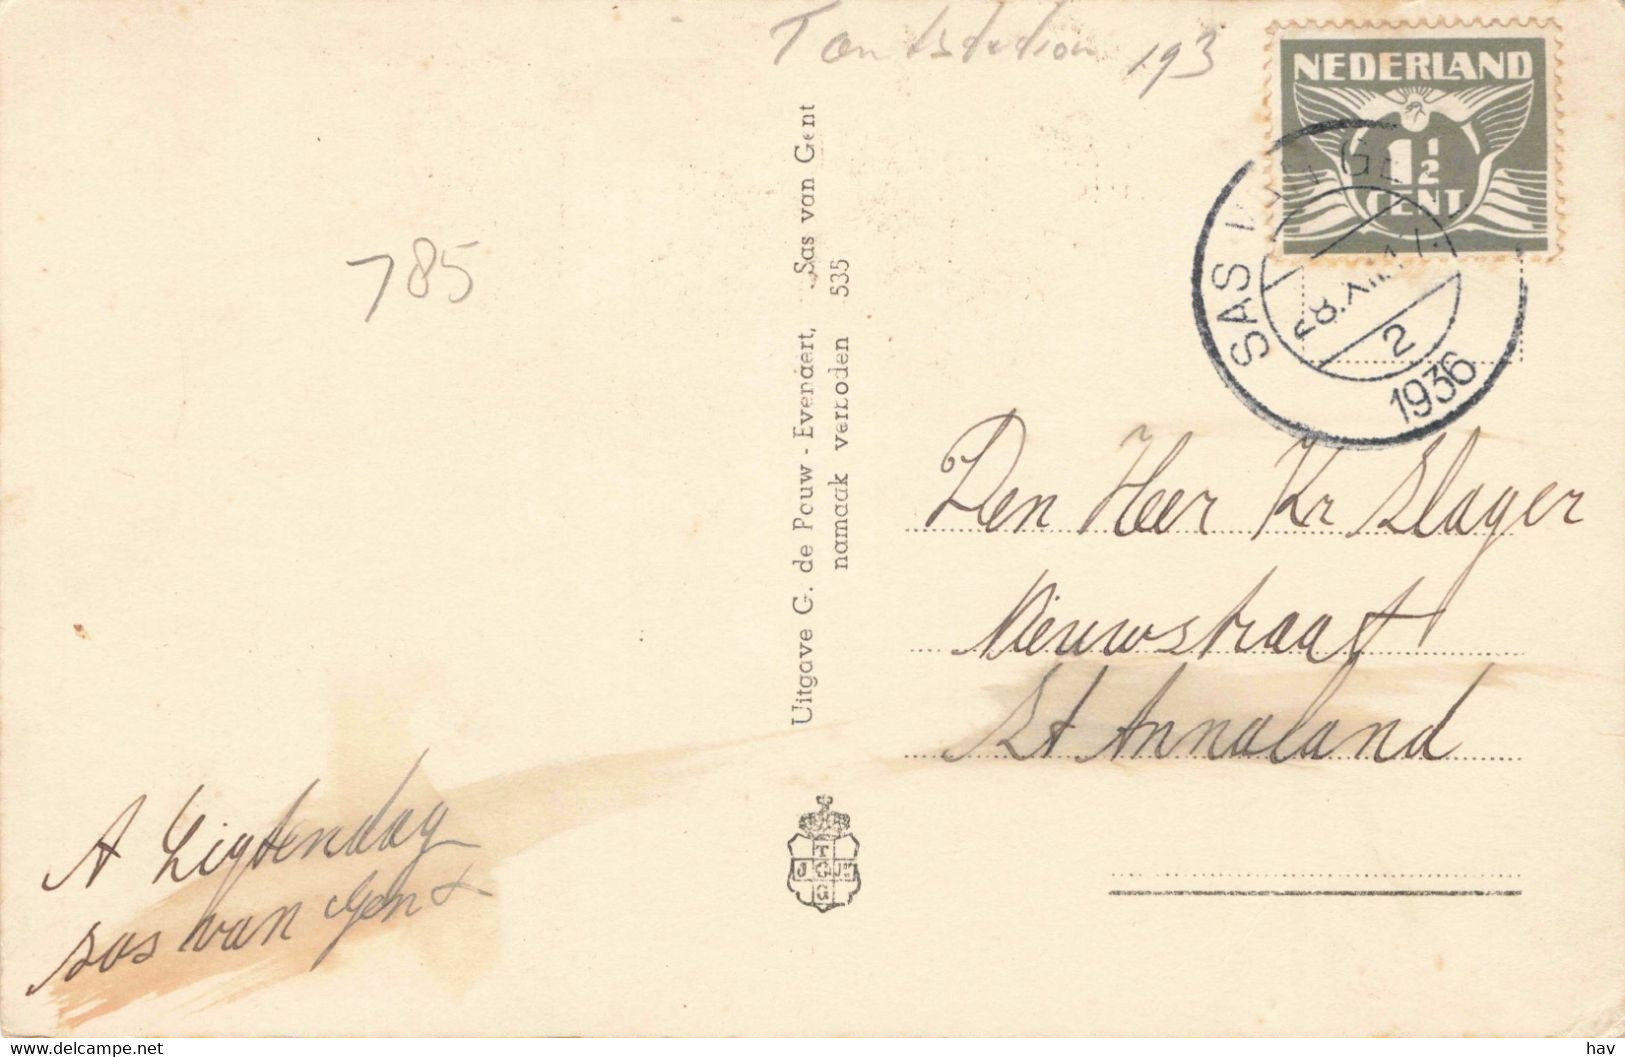 193
NEDERLAND
1½
CENT
SAS VAN GE
28.XII.17
2
1936
785
Uitgave G. de Pouw - Evenaert, Sas van Gent
namaak verboden 535
Den Heer Kr Slager
Nieuwstraat
St Annaland
A Ligtendag
sas van Gent
delcampe.net
hav